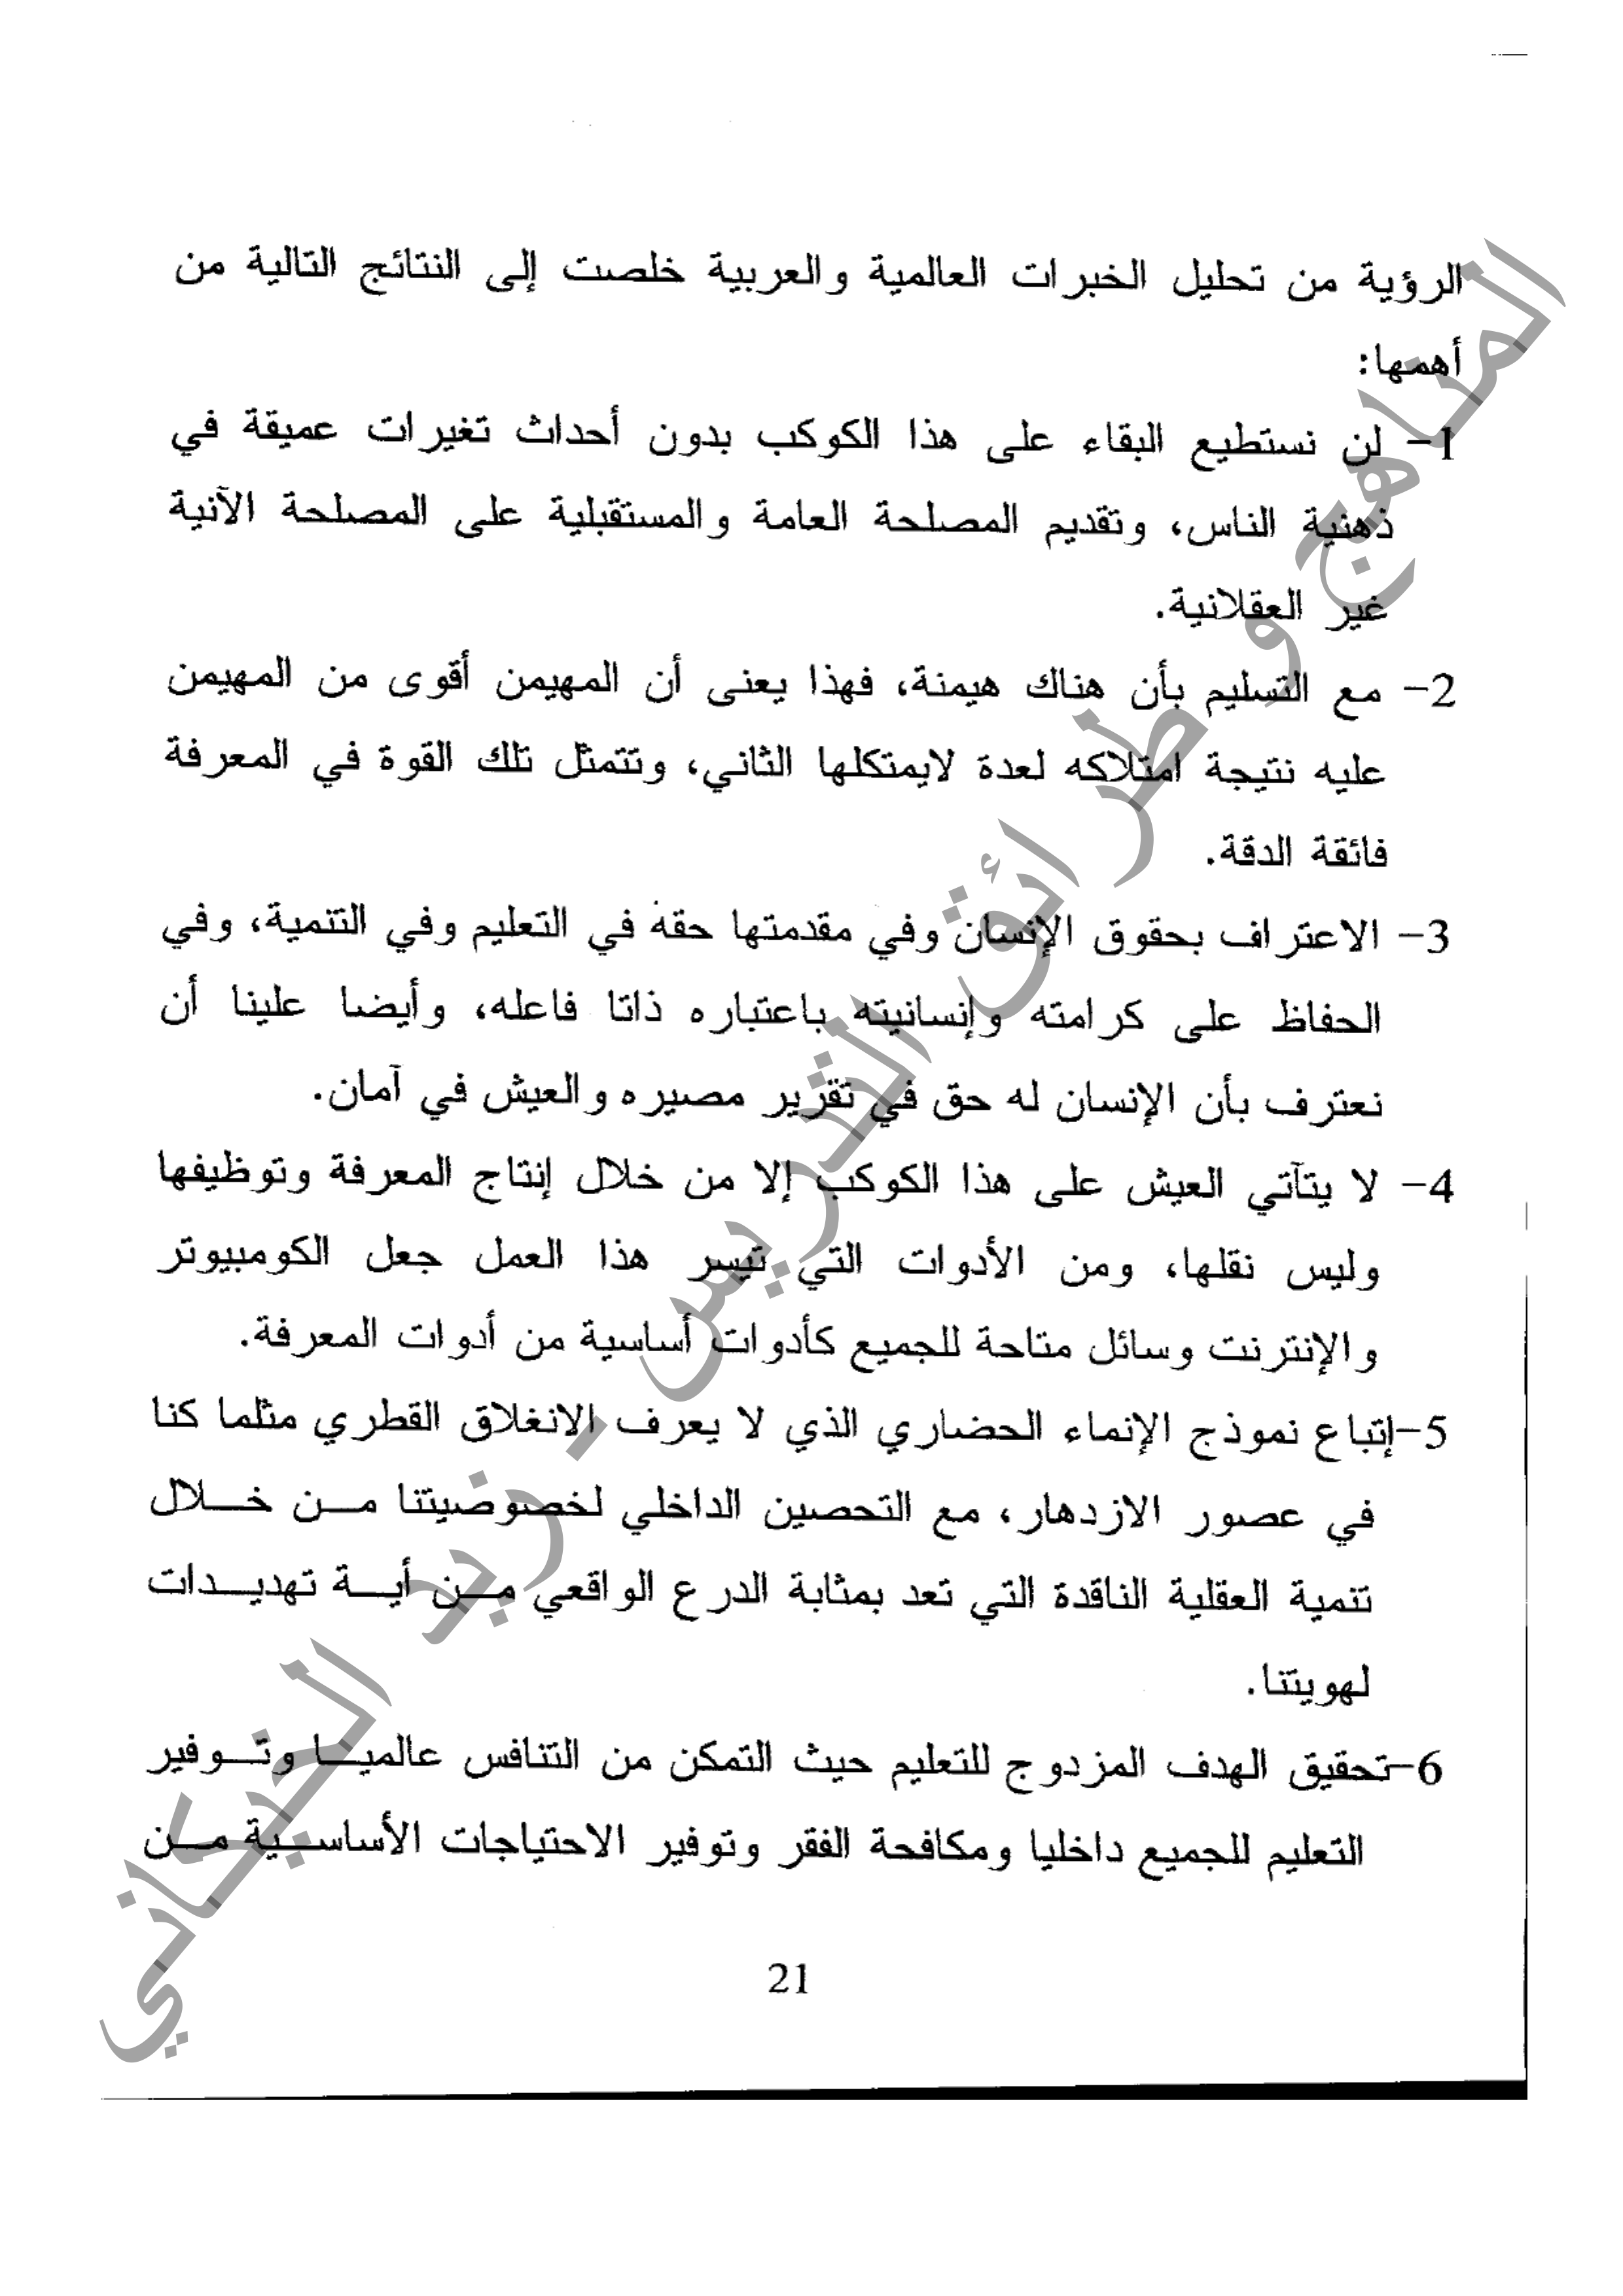 الرؤية من تحليل الخبرات العالمية والعربية خلصت إلى النتائج التالية من
أهمها:
1- لن نستطيع البقاء على هذا الكوكب بدون أحداث تغيرات عميقة في
ذهنية الناس، وتقديم المصلحة العامة والمستقبلية على المصلحة الآنية
غير العقلانية.
2- مع التسليم بأن هناك هيمنة، فهذا يعنى أن المهيمن أقوى من المهيمن
عليه نتيجة امتلاكه لعدة لايمتكلها الثاني، وتتمثل تلك القوة في المعرفة
فائقة الدقة.
3- الاعتراف بحقوق الإنسان وفي مقدمتها حقه في التعليم وفي التنمية، وفي
الحفاظ على كرامته وإنسانيته باعتباره ذاتا فاعله، وأيضا علينا أن
نعترف بأن الإنسان له حق في تقرير مصيره والعيش في آمان.
4- لا يتآتي العيش على هذا الكوكب إلا من خلال إنتاج المعرفة وتوظيفها
وليس نقلها، ومن الأدوات التي تيسر هذا العمل جعل الكومبيوتر
والإنترنت وسائل متاحة للجميع كأدوات أساسية من أدوات المعرفة.
5-إتباع نموذج الإنماء الحضاري الذي لا يعرف الانغلاق القطري مثلما كنا
في عصور الازدهار، مع التحصين الداخلي لخصوصيتنا مـــن خـــلال
تنمية العقلية الناقدة التي تعد بمثابة الدرع الواقعي مـــن أيـــة تهديـــدات
لهويتنا.
6-تحقيق الهدف المزدوج للتعليم حيث التمكن من التنافس عالميـــا وتـــوفير
التعليم للجميع داخليا ومكافحة الفقر وتوفير الاحتياجات الأساســـية مـــن
21
المناهج و طرائق التدريس - زيد الخيكاني